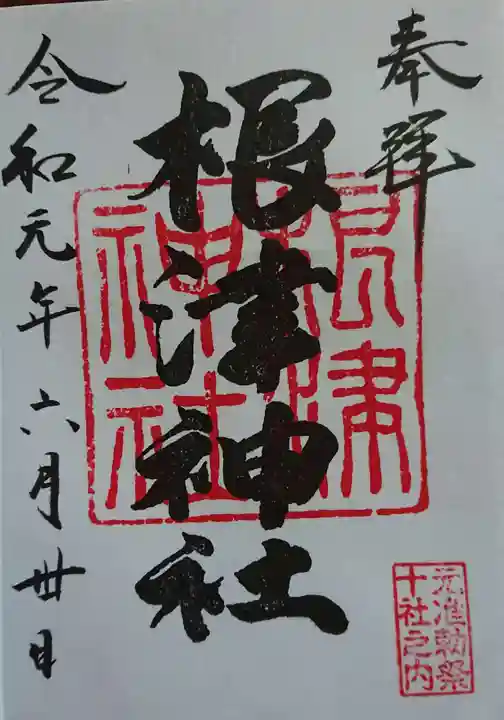 奉拝
根津神社
根津神社
元准勅祭
十社之内
令和元年六月卅日